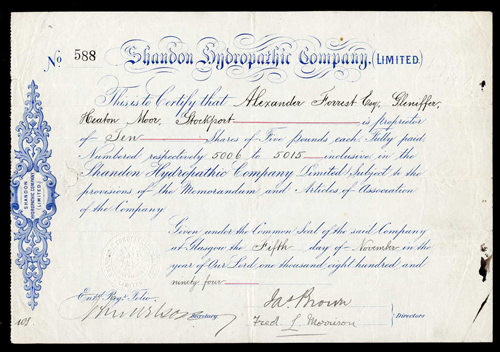 No 588 Shandon Hydropathic Company, (LIMITED.)
This is to Certify that Alexander Forrest Esq. Gleniffer,
Heaton Moor, Stockport is Proprietor
of Ten Shares of Five pounds each, Fully paid
Numbered respectively 5006 to 5015 inclusive in the
Shandon Hydropathic Company Limited Subject to the
provisions of the Memorandum and Articles of Association
of the Company.
Given under the Common Seal of the said Company
at Glasgow the Fifth day of November in the
year of Our Lord one thousand eight hundred and
ninety four
Entd. Regr. Folio
Secretary
Jas Brown
Fred L Morrison
Directors
SHANDON
HYDROPATHIC COMPANY
(LIMITED)